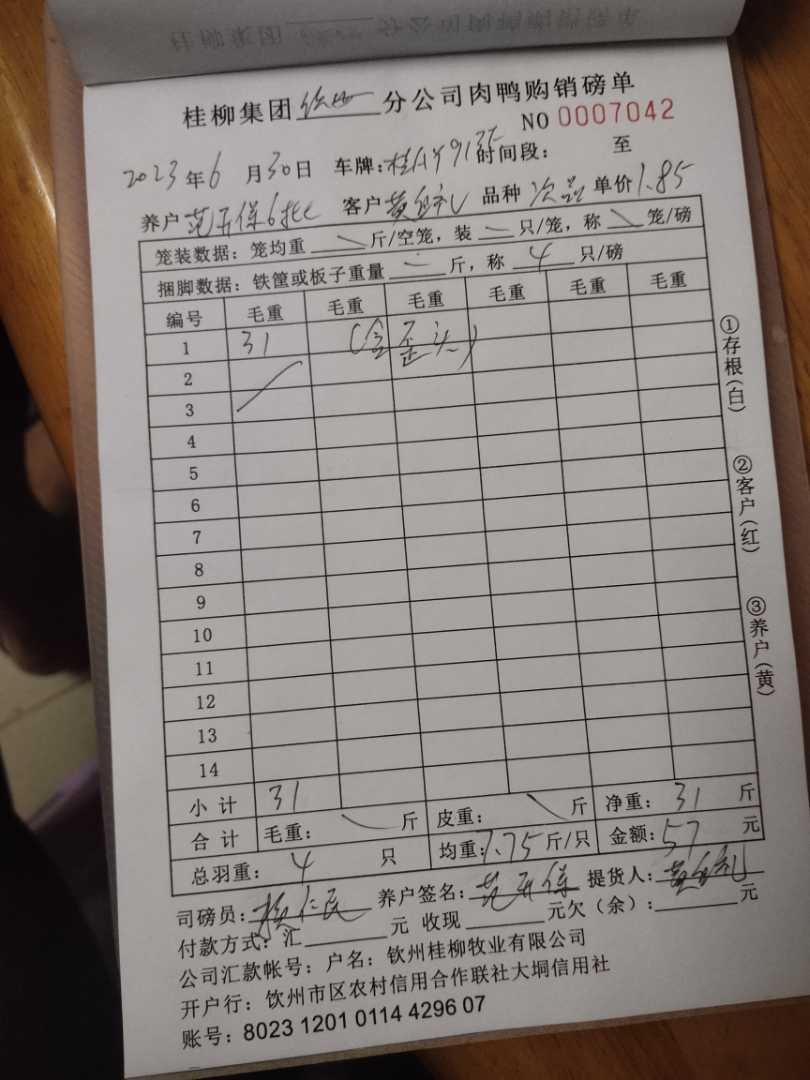 桂柳集团 钦州 分公司肉鸭购销磅单
NO 0007042
2023年6月30日 车牌:桂 时间段: 至
养户 保6批 客户 黄 品种 次品 单价1.85
笼装数据:笼均重 斤/空笼,装 只/笼,称 笼/磅
捆脚数据:铁筐或板子重量 斤,称 4 只/磅
编号 毛重 毛重 毛重 毛重 毛重 毛重
1 31 (含歪头)
2
3
4
5
6
7
8
9
10
11
12
13
14
小计 31
合计 毛重: 斤 皮重: 斤 净重: 31 斤
总羽重: 4 只 均重:7.75斤/只 金额:57 元
司磅员:杨仁民 养户签名: 保 提货人:黄
付款方式:汇 元 收现 元欠(余): 元
公司汇款帐号:户名:钦州桂柳牧业有限公司
开户行:钦州市区农村信用合作联社大垌信用社
账号:8023 1201 0114 4296 07
①存根(白)
②客户(红)
③养户(黄)